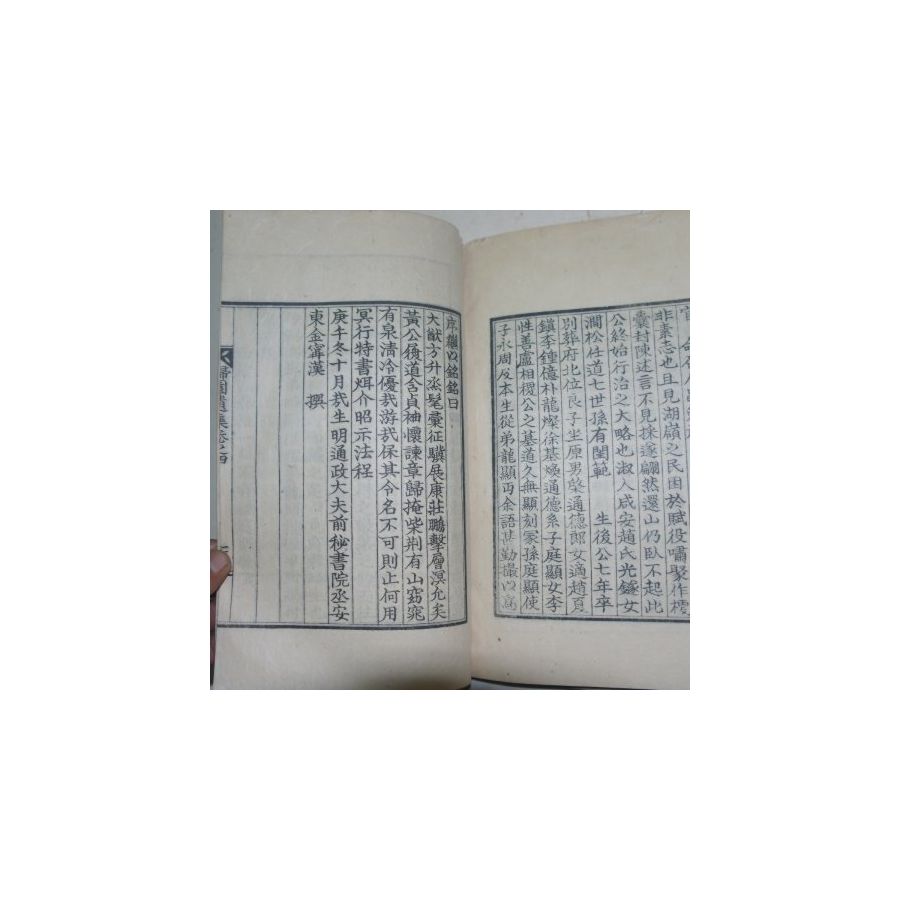 非素志也且見湖嶺之民困於賦役嘯聚作
囊封陳述言不見採遂翩然還山仍臥不起此
公終始行治之大略也淑人咸安趙氏光鎹女
澗松任道七世孫有閨範 生後公七年卒
別葬府北位良子坐原男啓通德郎女適趙
鎭李鍾億朴龍燦徐基煥通德系子庭顯女李
性善盧相稷公之墓道久無顯刻冢孫庭顯使
子永周反本生從弟龍顯丐余語甚勤撮以爲
序繼以銘銘曰
大猷方升烝髦彙征驥展康莊鵬擊層溟允矣
黃公履道含貞袖懷諫章歸掩柴荆有山窈窕
有泉淸冷優哉游哉保其令名不可則止何用
冥行特書炳介昭示法程
庚午冬十月哉生明通政大夫前秘書院丞安
東金寗漢 撰
歸園遺集卷之四